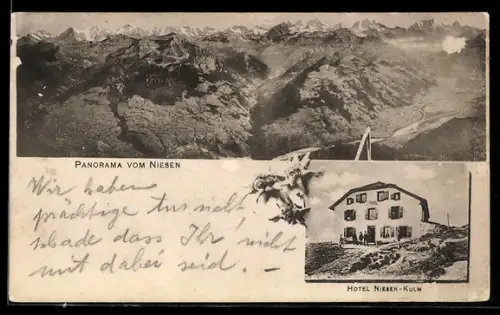 PANORAMA VOM NIESEN
Wir haben
prächtige Aussicht
schade dass Ihr nicht
mit dabei seid. —
HOTEL NIESEN-KULM